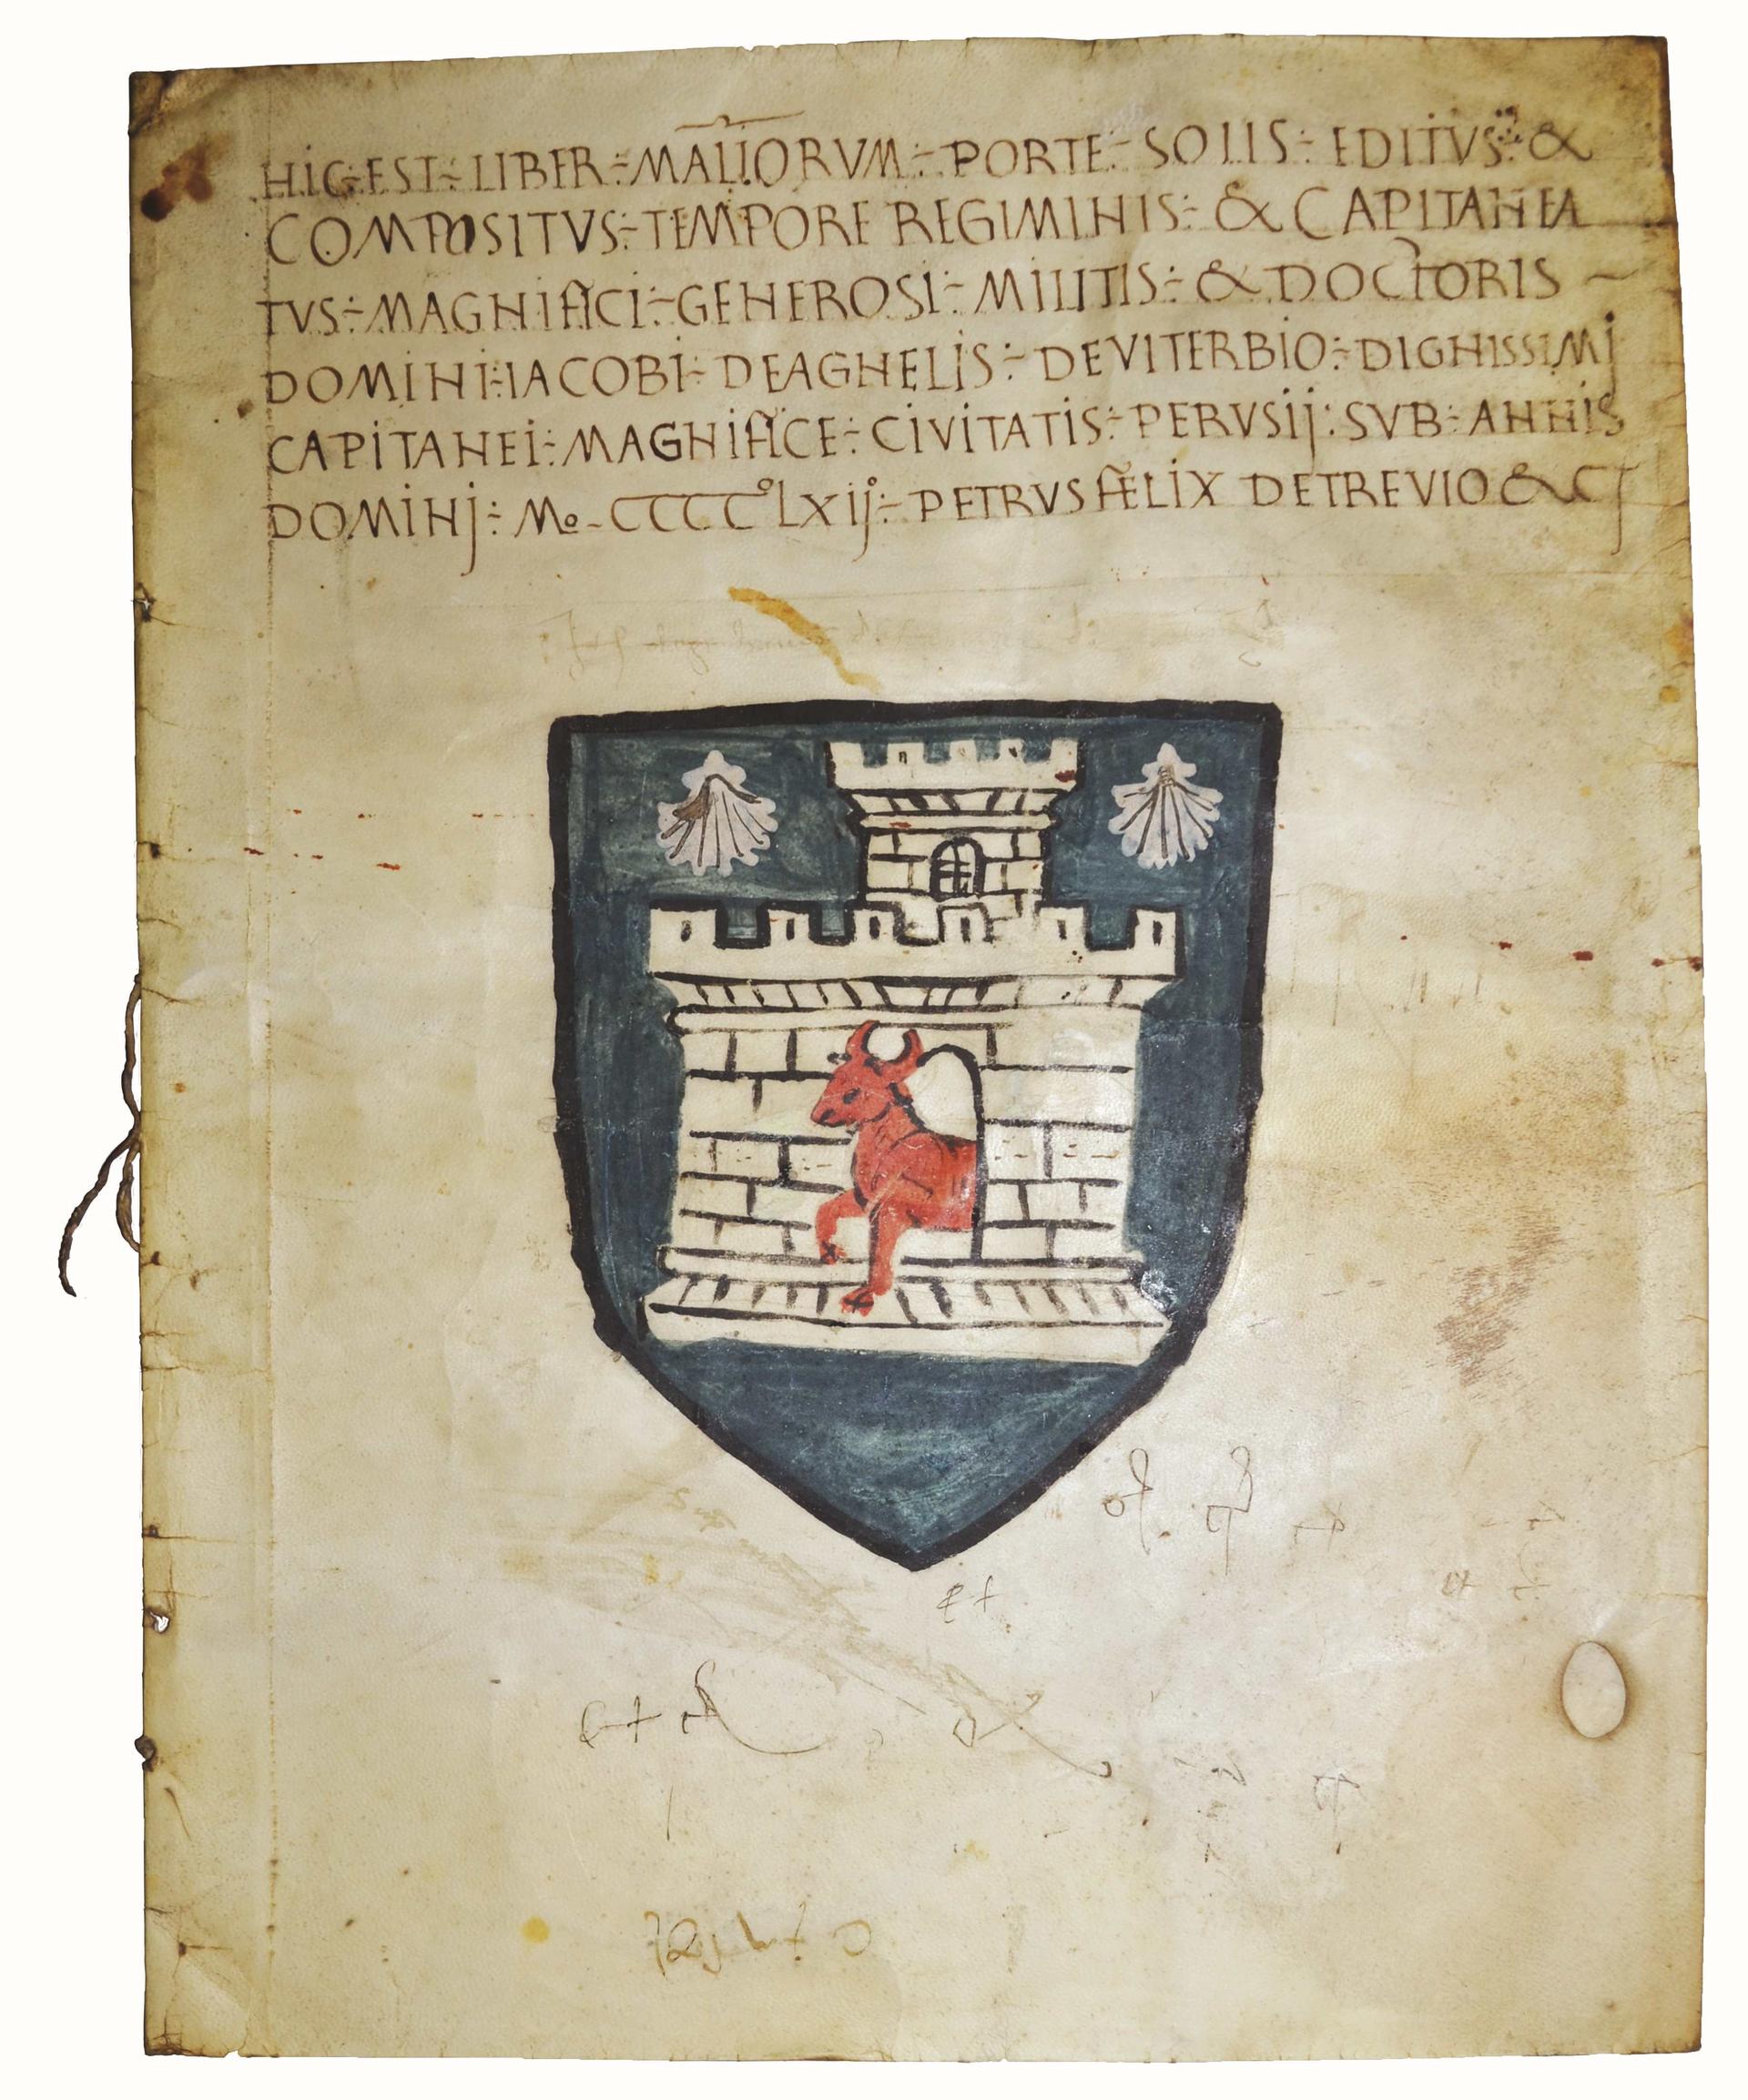 HIC÷EST÷LIBER÷MALIORVM÷PORTE÷SOLIS÷EDITVS÷&
COMPOSITVS÷TEMPORE REGIMINIS÷& CAPITANEA
TVS÷MAGNIFICI÷GENEROSI÷MILITIS÷& DOCTORIS ~
DOMINI÷IACOBI÷DEAGNELIS÷DEVITERBIO÷DIGNISSIMJ
CAPITANEI÷MAGNIFICE÷CIVITATIS÷PERVSIJ:SVB÷ANNIS
DOMINJ÷Mo-CCCCºLXIJ÷PETRVS FELIX DETREVIO & CJ
et